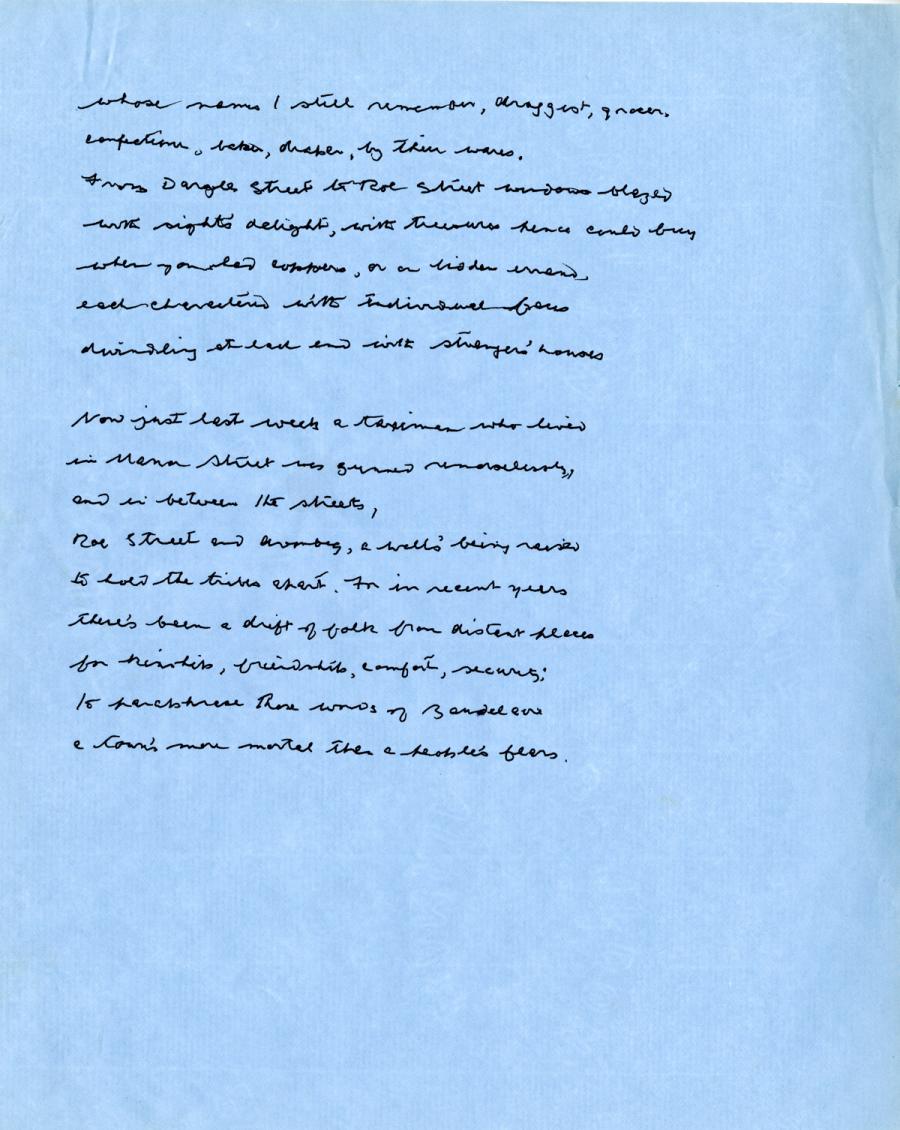 whose names I still remember, druggist, grocer,
confectioner, baker, draper, by their wares.
From Dargle Street to Roe Street windows blazed
with sights' delight, with treasures pence could buy
when you'd coppers, or on bidden errand,
each characterised with individual faces
dwindling at each end with strangers' houses
Now just last week a taximan who lived
in Manor Street was gunned remorselessly,
and in between the streets,
Roe Street and Avonbeg, a wall's being raised
to hold the tribes apart. For in recent years
there's been a drift of folk from distant places
for kinship, friendship, comfort, security;
to paraphrase those words of Baudelaire
a town's more mortal than a people's fears.